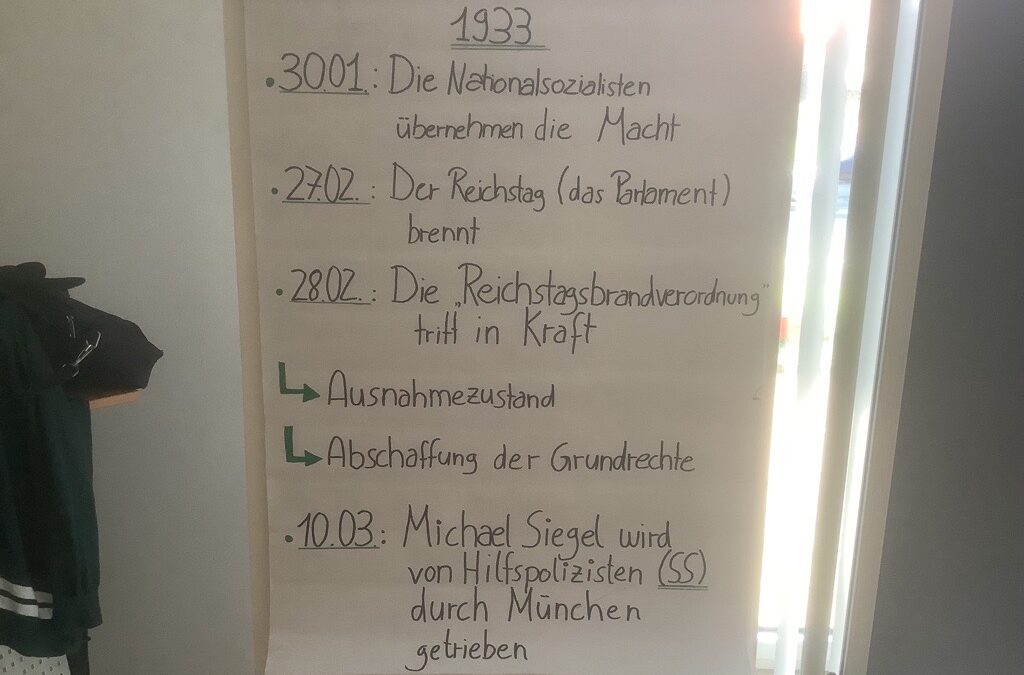 1933
• 30.01.: Die Nationalsozialisten
übernehmen die Macht
• 27.02.: Der Reichstag (das Parlament)
brennt
• 28.02.: Die „Reichstagsbrandverordnung"
tritt in Kraft
↳ Ausnahmezustand
↳ Abschaffung der Grundrechte
• 10.03.: Michael Siegel wird
von Hilfspolizisten (SS)
durch München
getrieben